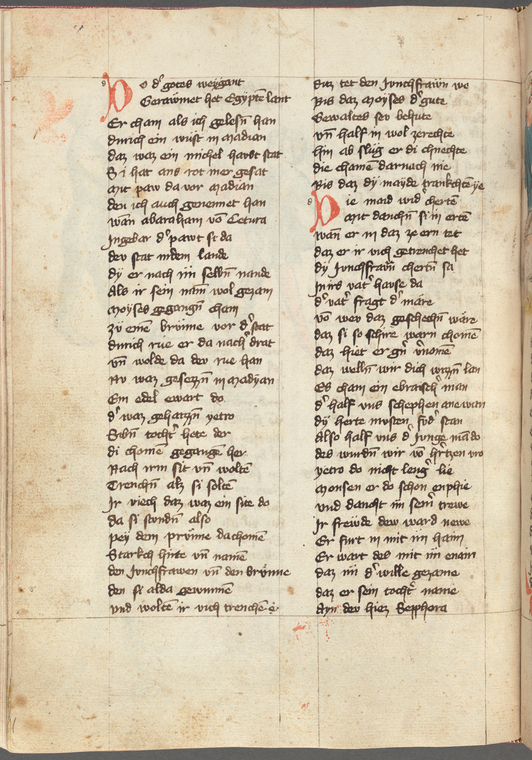 Do dˀ gotes weygant
Gerawmet het Egyptē lant
Er cham als ich gelesn̄ han
durich ein wust in Madian
daz waz ein michel hawbt stat
Si hat ans rot mer gesat
Mit paw da vor Madian
den ich auch genennet han
wan abaraham vō Cetura
Ingebar dˀ pawt si da
dev stat in dem lande
dy er nach im selbn̄ nande
Als ir sein nam̄ wol gezam
Moyses gegangn̄ cham
zů einē brůnne vor dˀ stat
durich rue er da nachˀ drat
vn̄ wolde da dev rue han
Nv waz gesezzn̄ in Madyan
Ein edel ewart do
dˀ waz gehaizzn̄ yetro
Sibn̄ tochtˀ hete der
di chomē gegangē her
Nach irm sit vn̄ woltē
Trenchn̄ alz si soltē
Ir viech daz waz ein site do
da si stundn̄ also
pey dem průnne da chomē
Starkch hirtē vn̄ namē
den Junchfrawen vn̄ den brůnne
den si alda gewunnē
Und woltē ir vich trenchē ē
daz tet den Junchfrawn̄ we
Bis daz Moyses dˀ gute
Gewaltes sev behute
vn̄ half in wol zerechte
hin ab slůg er di chnechte
die chamē darnach nie
Bis daz dy mayde trankchtē ye
Die maid widˀ chertē
Mit danchn̄ si in ertē
wan̄ er in daz ze ern tet
daz er ir vich getrenchet het
dy Junchfrawn̄ chertn̄ sa
In irs vatˀ hawse da
dˀ vatˀ fragt dˀ mare
vō wev daz geschechn̄ ware
daz si so schire warn̄ chomē
daz hiet er gˀn̄ vˀnomē
daz welln̄ wir dich wizzn̄ lan
Es cham ein ebraischˀ man
dˀ half vns schephen ane wan
dy herte mustē fvdˀ stan
Also half vns dˀ Junge mā do
des wurdn̄ wir vō hˀtzen vro
yetro do nicht lengˀ lie
Moysen er do schon enphie
vnd dancht im seinˀ trewe
Ir frewde dew ward newe
Er furt in mit im haim
Er wart des mit im enain
daz im dˀ wille gezame
daz er sein tochtˀ name
Ayn dev hiez Sepphora